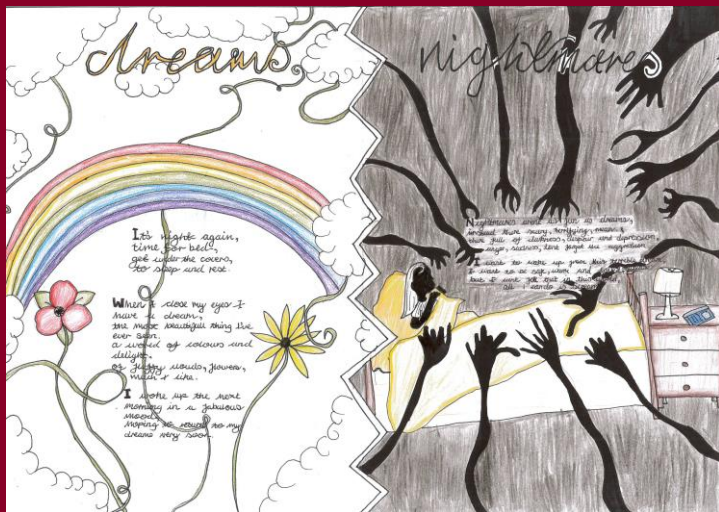 dreams
It's night again,
time for bed,
get under the covers,
to sleep and rest.
When I close my eyes I
have a dream,
the most beautifull thing I've
ever seen.
a world of colours and
delight,
of fluffy clouds, flowers,
much I like.
I woke up the next
morning in a fabulous
mood,
hoping to return to my
dreams very soon.
nightmares
Nightmares aren't as fun as dreams,
instead their scary, horrifying, mean &
their full of darkness, despair and depression,
anger, sadness, don't forget the aggression
I want to wake up from this terrible
I want to be safe, warm and
but I won't get out in
all I can do is